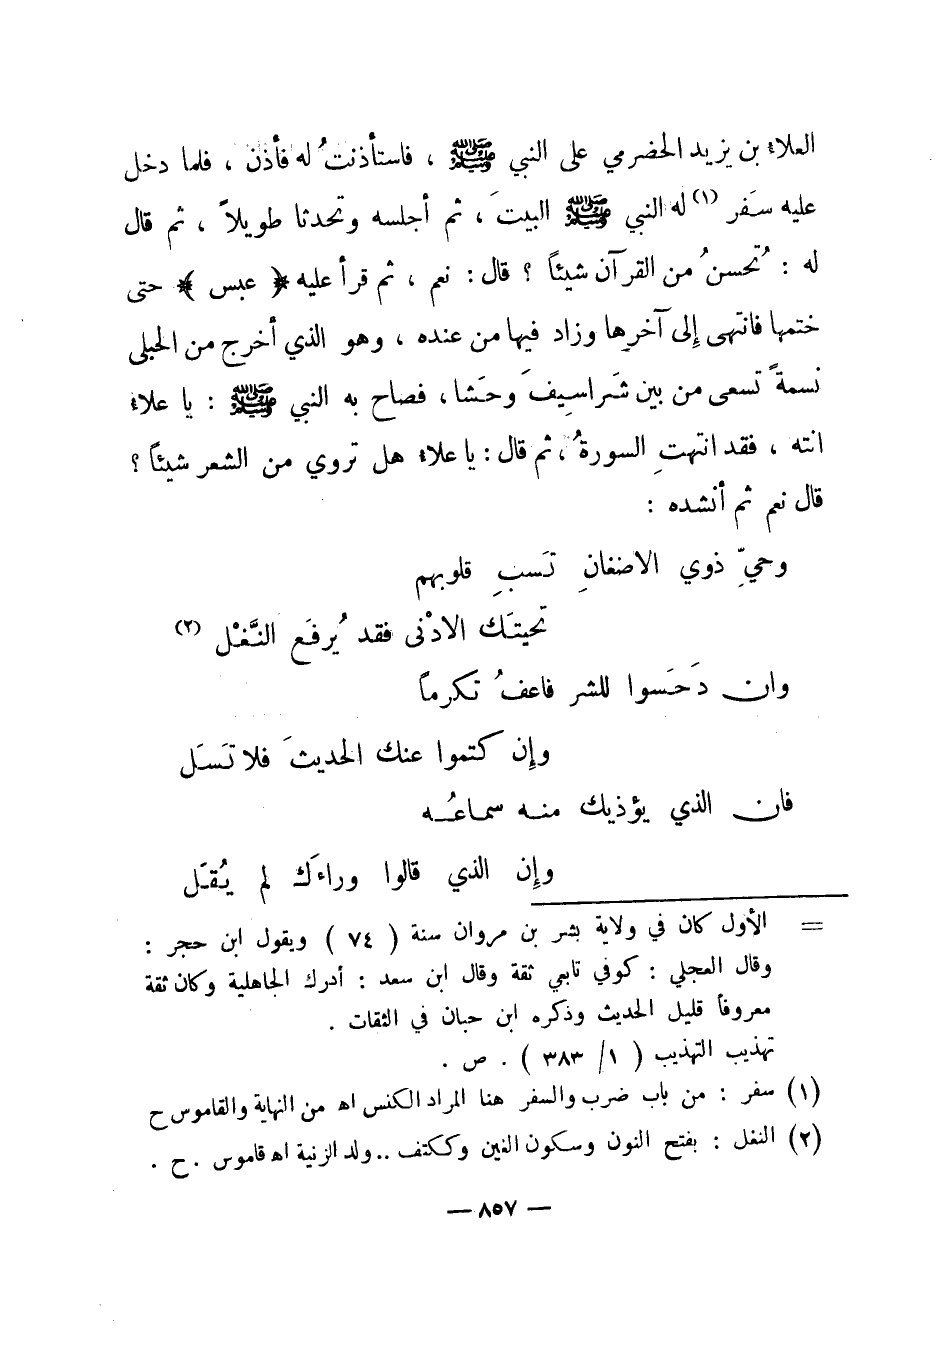 العلاء بن يزيد الحضرمي على النبي ﷺ ، فاستأذنتُ له فأذن ، فلما دخل
عليه سَفر (١) له النبي ﷺ البيتَ ، ثم أجلسه وتحدثا طويلاً ، ثم قال
له : تُحسنُ من القرآن شيئاً ؟ قال : نعم ، ثم قرأ عليه ﴿ عبس ﴾ حتى
ختمها فانتهى إلى آخرها وزاد فيها من عنده ، وهو الذي أخرج من الحبلى
نسمةً تسعى من بين شَراسيفَ وحَشا ، فصاح به النبي ﷺ : يا علاء
انته ، فقد انتهتِ السورةُ ، ثم قال : يا علاء هل تروي من الشعر شيئاً ؟
قال نعم ثم أنشده :
وحيِّ ذوي الاضغانِ تَسبِ قلوبهم
تحيتَك الادْنى فقد يُرفَع النَّغْل (٢)
وان دَحَسوا للشر فاعفُ تكرماً
وإن كتموا عنك الحديثَ فلا تَسَل
فان الذي يؤذيك منه سماعُه
وإن الذي قالوا وراءَك لم يُقَل
= الأول كان في ولاية بشر بن مروان سنة ( ٧٤ ) ويقول ابن حجر :
وقال العجلي : كوفي تابعي ثقة وقال ابن سعد : أدرك الجاهلية وكان ثقة
معروفاً قليل الحديث وذكره ابن حبان في الثقات .
تهذيب التهذيب ( ١/ ٣٨٣ ) . ص .
(١) سفر : من باب ضرب والسفر هنا المراد الكنس اه من النهاية والقاموس ح
(٢) النغل : بفتح النون وسكون الغين وككتف .. ولد الزنية اه قاموس . ح .
— ٨٥٧ —